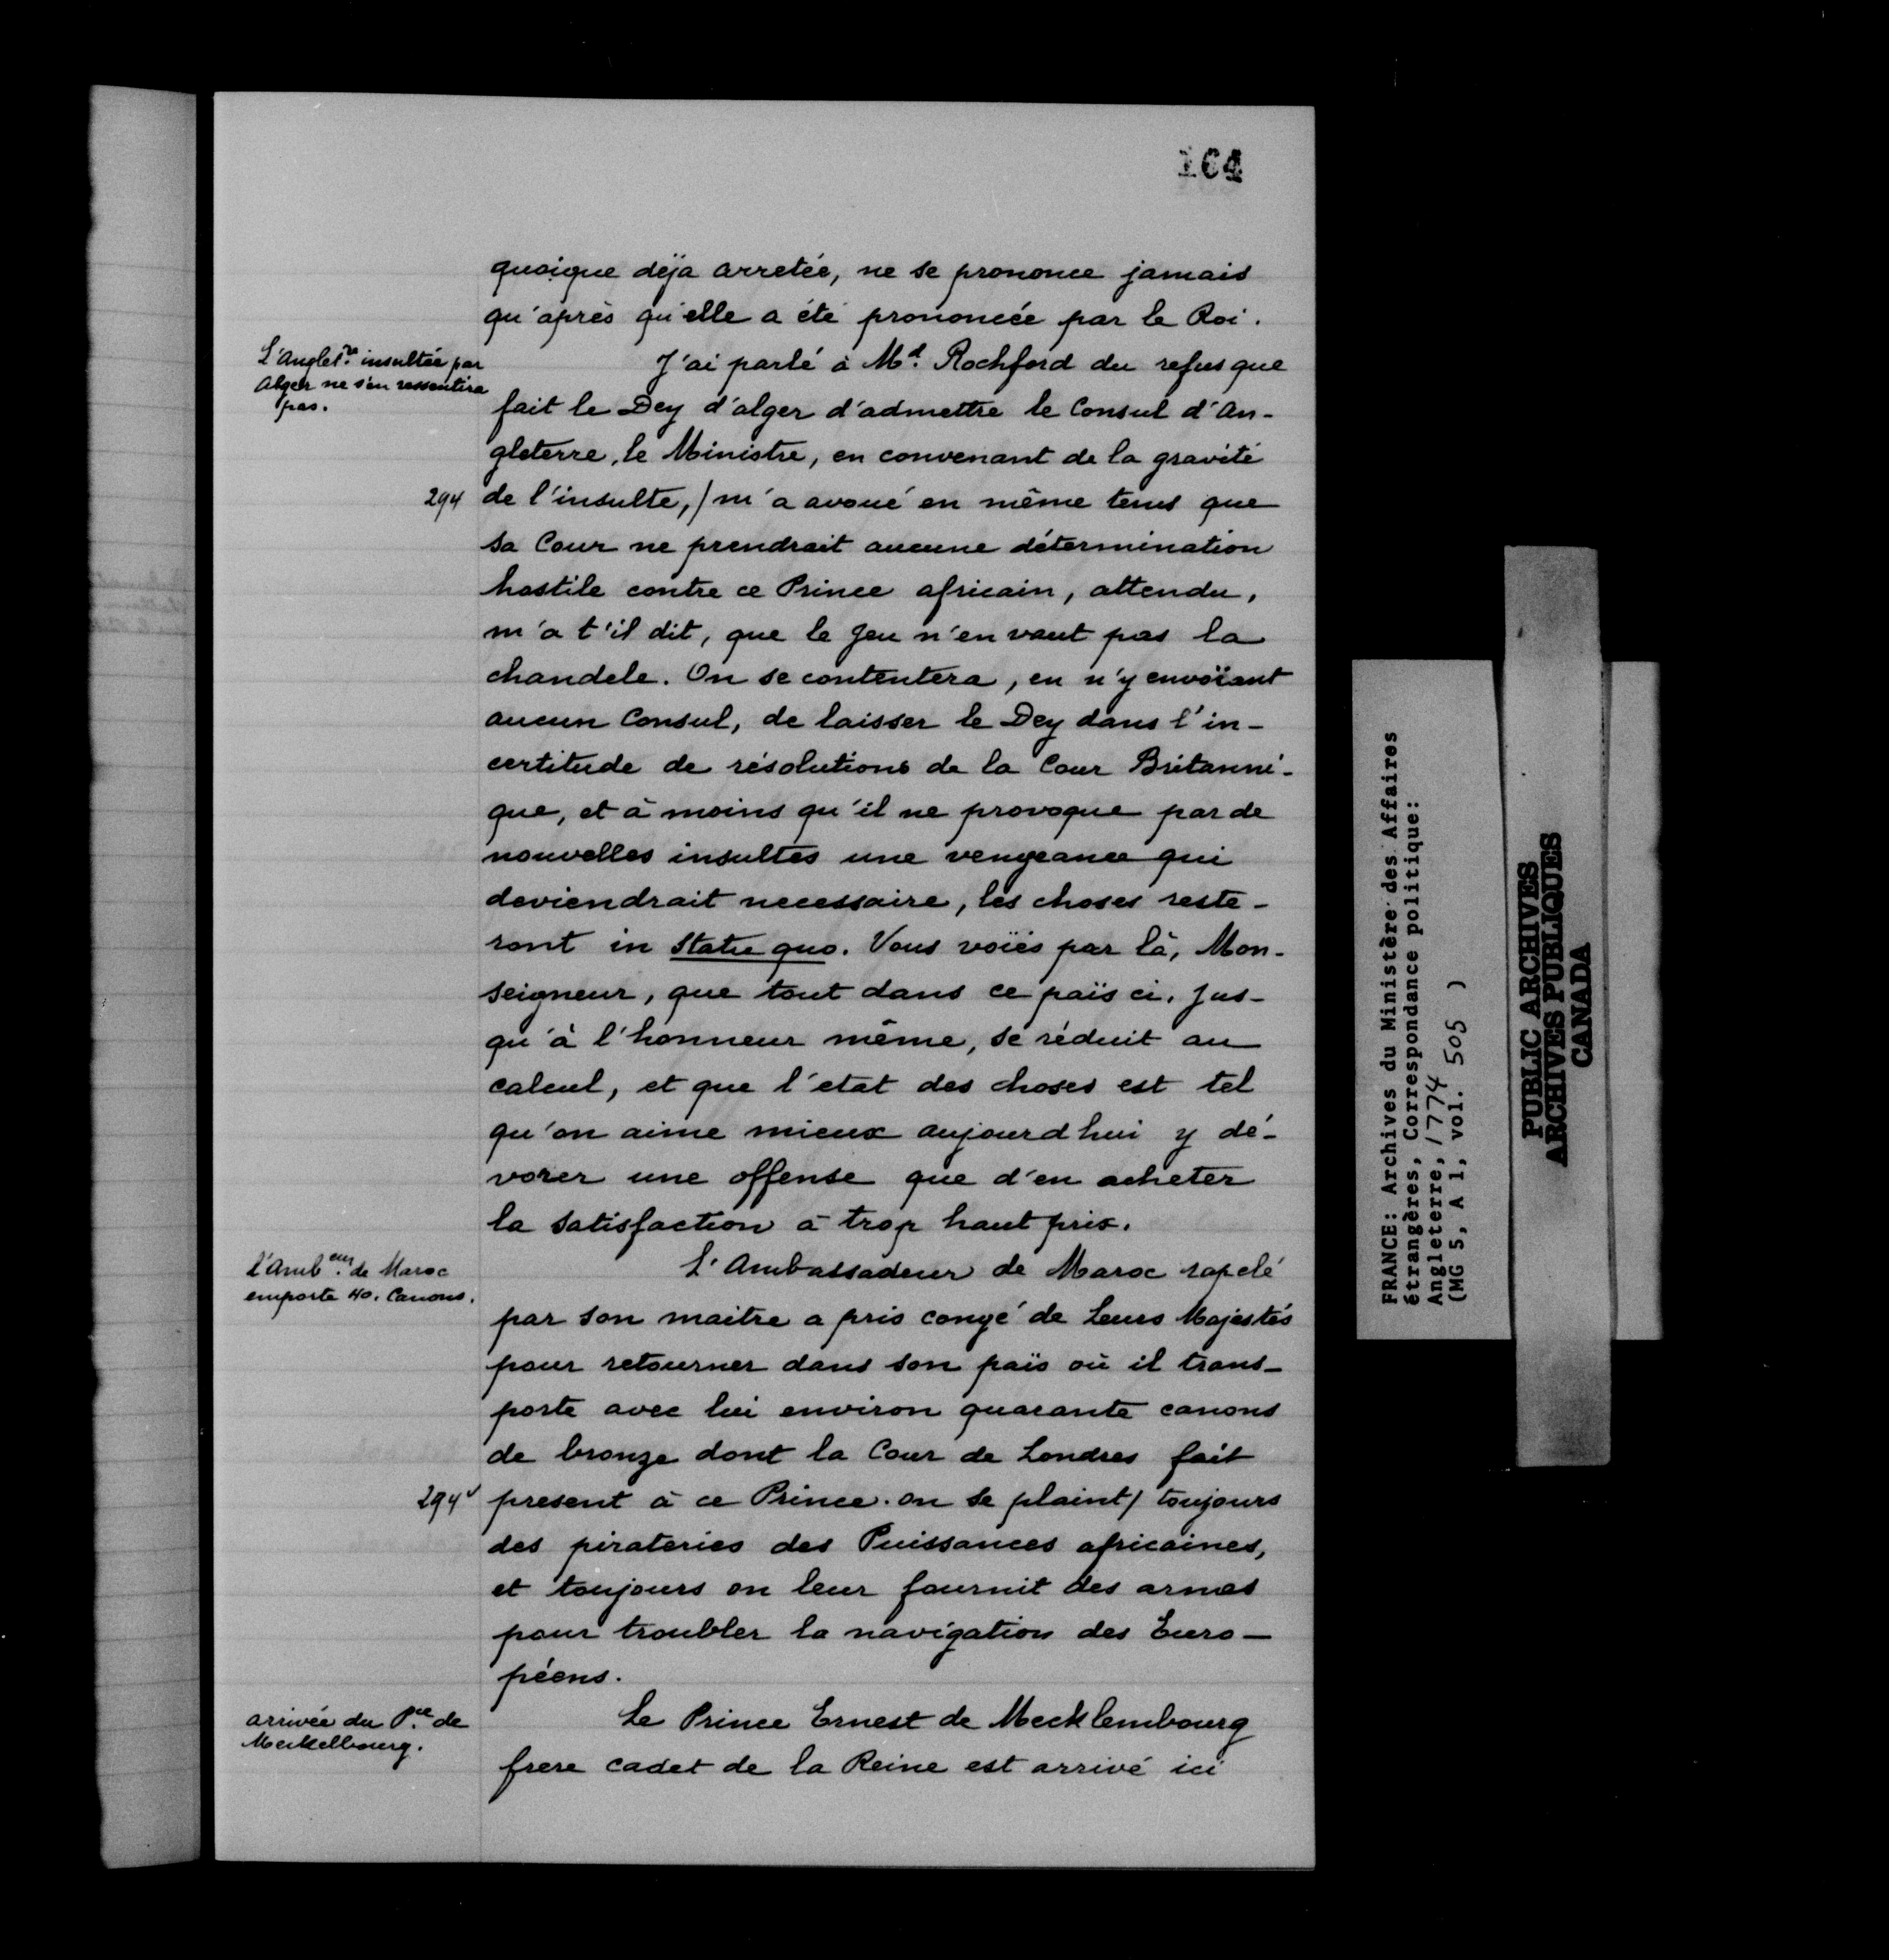 164
quoique déja arretée, ne se prononce jamais
qu'après qu'elle a été prononcée par le Roi.
L'Anglet.re insultée par
Alger ne s'en ressentira
pas.
J'ai parlé à M.d Rochford du refus que
fait le Dey d'alger d'admettre le Consul d'An-
gleterre, le Ministre, en convenant de la gravité
294
de l'insulte, / m'a avoué en même tems que
sa Cour ne prendrait aucune détermination
hostile contre ce Prince africain, attendu,
m'a t'il dit, que le jeu n'en vaut pas la
chandele. On se contentera, en n'y envoïant
aucun Consul, de laisser le Dey dans l'in-
certitude de résolutions de la Cour Britanni-
que, et à moins qu'il ne provoque par de
nouvelles insultes une vengeance qui
deviendrait necessaire, les choses reste-
ront in statu quo. Vous voïés par là, Mon-
seigneur, que tout dans ce païs ci, jus-
qu'à l'honneur même, se réduit au
calcul, et que l'etat des choses est tel
qu'on aime mieux aujourd'hui y dé-
vorer une offense que d'en acheter
la satisfaction à trop haut prix.
l'Amb.eur de Maroc
emporte 40. Canons.
L'Ambassadeur de Maroc rapelé
par son maitre a pris congé de Leurs Majestés
pour retourner dans son païs où il trans-
porte avec lui environ quarante canons
de bronze dont la Cour de Londres fait
294v
present à ce Prince. on se plaint / toujours
des pirateries des Puissances africaines,
et toujours on leur fournit des armes
pour troubler la navigation des Euro-
péens.
arrivée du P.ce de
Meckelbourg.
Le Prince Ernest de Mecklembourg
frere cadet de la Reine est arrivé ici
FRANCE: Archives du Ministère des Affaires
étrangères, Correspondance politique:
Angleterre, 1774
(MG 5, A 1, vol. 505 )
PUBLIC ARCHIVES
ARCHIVES PUBLIQUES
CANADA